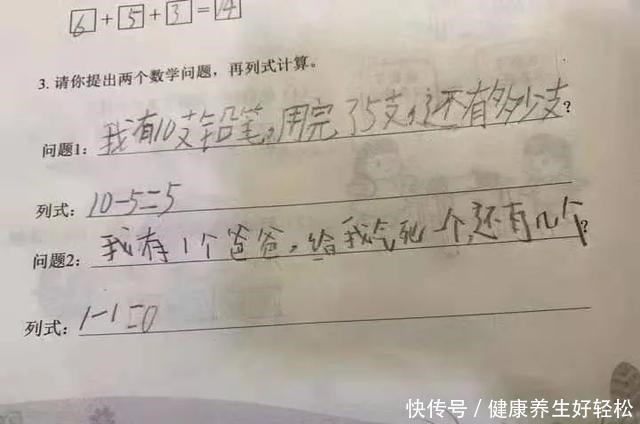 6+5+3=14
3. 请你提出两个数学问题，再列式计算。
问题1：我有10支铅笔，用完了5支，还有多少支？
列式：10-5=5
问题2：我有1个爸爸，给我气死一个，还有几个？
列式：1-1=0
快传号／健康养生好轻松